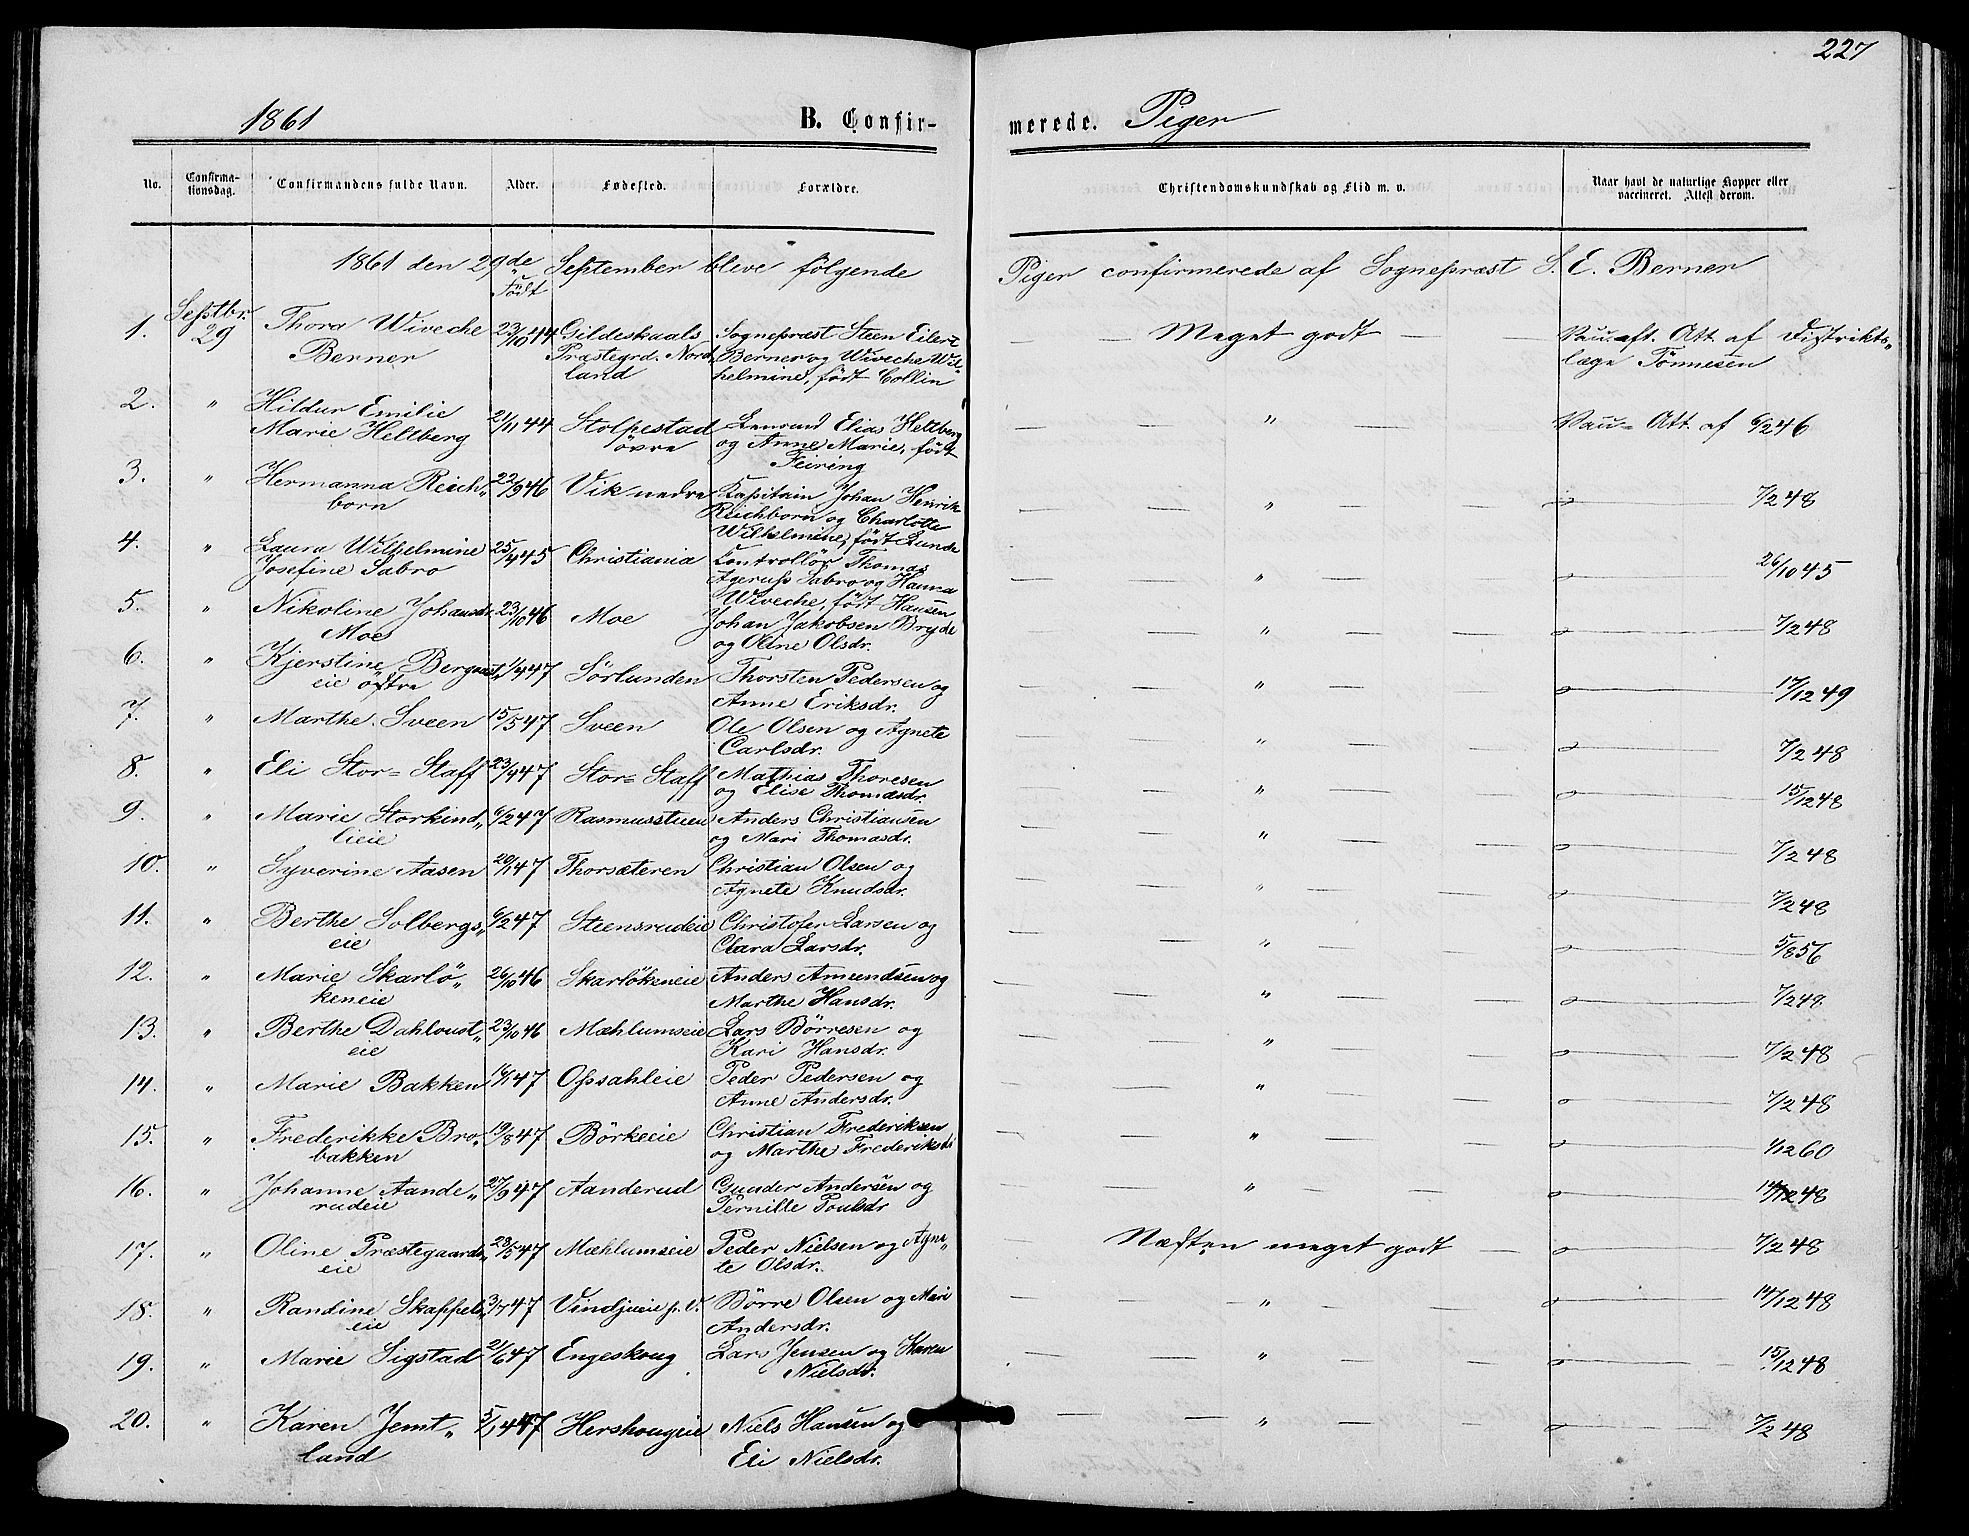 227
1861
B. Confir-
merede. Piger
No.
Confirma-
tionsdag.
Confirmandens fulde Navn.
Alder.
Fødested.
Forældre.
Christendomskundskab og Flid m. v.
Naar havt de naturlige Kopper eller
vaccineret. Attest derom.
1861 den 29de September bleve følgende
Piger confirmerede af Sognepræst S. E. Berner
Født
1. Septbr. 29 Thora Wiveche 23/10 44 Gildeskaals Sognepræst Steen Eilert — Meget godt — Vacc. eft. Att. af Distrikts„
Berner Præstegrd. Nord„ Berner og Wiveche Wil„ læge Tönnesen
land helmine, født Collin
2. " Hildur Emilie 21/11 44 Stolpestad Elias Heltberg — " — Vacc= Att. af 6/2 46
Marie Heltberg övre og Anne Marie, født
Feiring
3. " Hermanna Reich„ 22/9 46 Vik nedre Kapitain Johan Henrik — " — 7/2 48
born Reichborn og Charlotte
Wilhelmine, født Lunde
4. " Laura Wilhelmine 25/4 45 Christiania Controllör Thomas — " — 26/10 45
Josefine Sabro Sabro og Hanna
Wiveche, født Hansen
5. " Nikoline Johansdr. 23/10 46 Moe Johan Jakobsen Bryde — " — 7/2 48
Moe og Oline Olsdr.
6. " Kjerstine 1/4 47 Sörlunden Thorsten Pedersen og — " — 17/12 49
eie östre Anne Eriksdr.
7. " Marthe Sveen 15/5 47 Sveen Ole Olsen og Agnete — " — 7/2 48
Carlsdr.
8. " Eli Stor= Staff 23/4 47 Stor= Staff Mathias Thoresen — " — 15/12 48
og Elise Thomasdr.
9. " Marie Storkind„ 6/2 47 Rasmusstuen Anders Christiansen — " — 7/2 48
lieie og Mari Thomasdr.
10. " Syverine Aasen 20/1 47 Thorsæteren Christian Olsen og — " — 7/2 48
Agnete Knudsdr.
11. " Berthe Solbergs„ 6/2 47 Steensrudeie Christofer Larsen og — " — 5/8 56
eie Clara Larsdr.
12. " Marie Skarlö„ 26/10 46 Skarlökeneie Anders Amundsen og — " — 7/2 48
keneie Marthe Hansdr.
13. " Berthe Dahloust„ 23/10 46 Mæhlumseie Lars Börresen og — " — 7/2 48
eie Kari Hansdr.
14. " Marie Bakken 16/1 47 Opsahleie Peder Pedersen og — " — 7/2 48
Anne Andersdr.
15. " Frederikke Bro„ 19/8 47 Börkeeie Christian Frederiksen — " — 1/12 60
bakken og Marthe Frederiksdr
16. " Johanne Aande„ 27/9 47 Aanderud Gunder Andersen og — " — 14/12 48
rudeie Pernille Poulsdr
17. " Oline Præstegaards„ 23/5 47 Mæhlumseie Peder Nielsen og Agne„ — Næsten meget godt — 7/2 48
eie te Olsdr.
18. " Randine Skappels„ 3/7 47 Vindjueie p. V. Börre Olsen og Mari — " — 14/12 48
eie Andersdr.
19. " Marie Sigstad 21/6 47 Engeskoug Lars Jensen og Karen — " — 15/12 48
Nielsdr.
20. " Karen Jemt„ 5/1 47 Hershougeie Niels Hansen og — " — 7/2 48
land Eli Nielsdr.